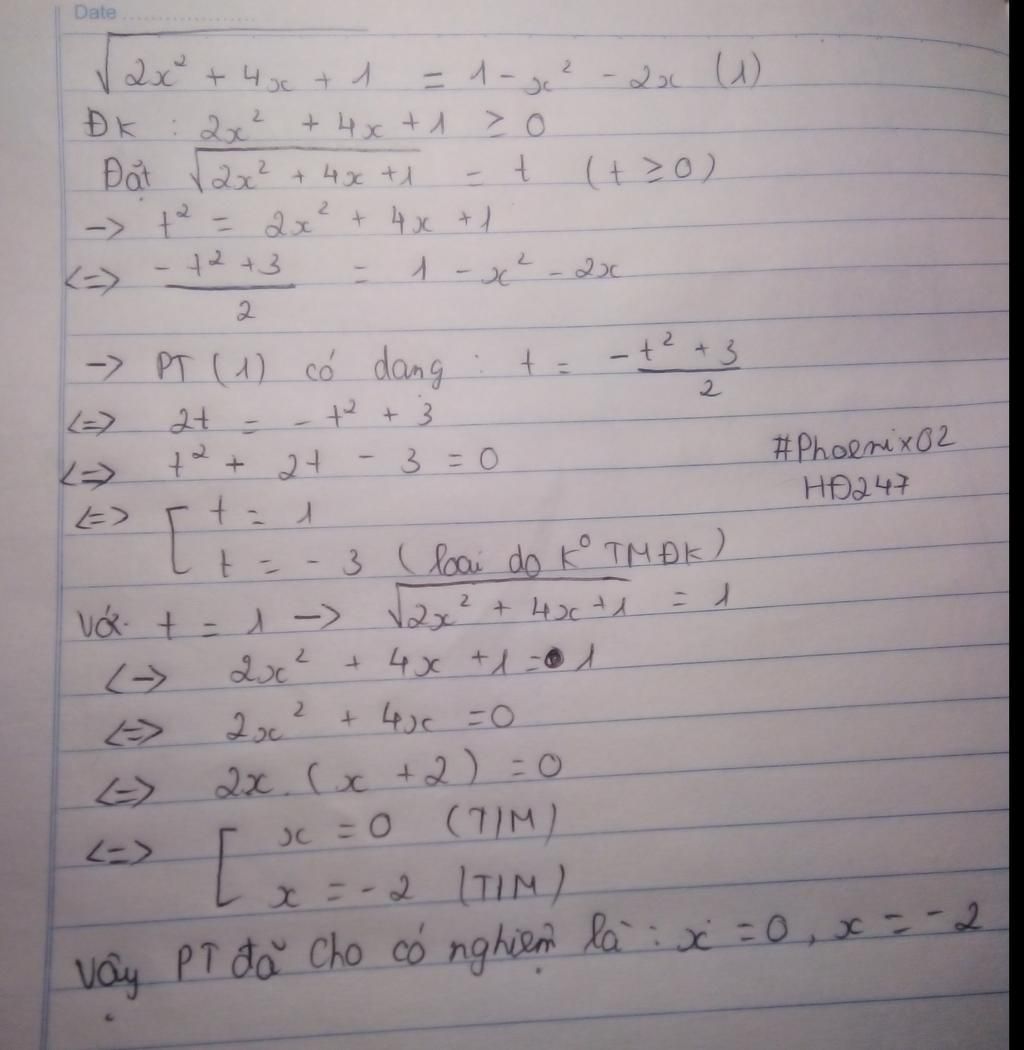 Date
√(2x² + 4x + 1) = 1 - x² - 2x (1)
ĐK : 2x² + 4x + 1 ≥ 0
Đặt √(2x² + 4x + 1) = t (t ≥ 0)
-> t² = 2x² + 4x + 1
<=> (-t² + 3)/2 = 1 - x² - 2x
-> PT (1) có dang : t = (-t² + 3)/2
<=> 2t = -t² + 3
<=> t² + 2t - 3 = 0
#Phoenix02
HĐ247
<=> [ t = 1
t = -3 (loai do K° TMĐK)
Với t = 1 -> √(2x² + 4x + 1) = 1
<-> 2x² + 4x + 1 = 1
<=> 2x² + 4x = 0
<=> 2x . (x + 2) = 0
<=> [ x = 0 (T/M)
x = -2 (T/M)
Vậy PT đã cho có nghiệm là : x = 0, x = -2